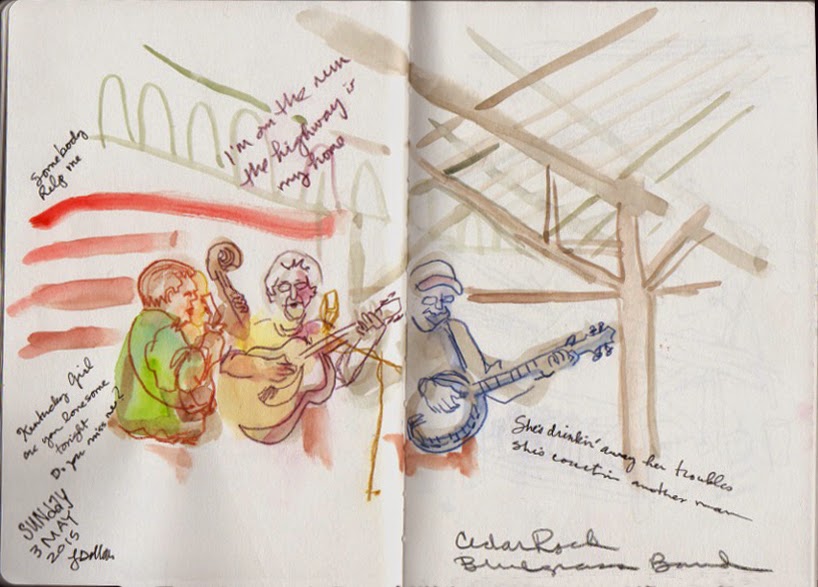 Somebody
help me
I'm on the run
the highway is
my home
Kentucky Girl
are you lonesome
tonight
Do you miss me?
SUNday
3 MAY
2015
She's drinkin' away her troubles
She's courtin another man
Cedar Rock
Bluegrass Band